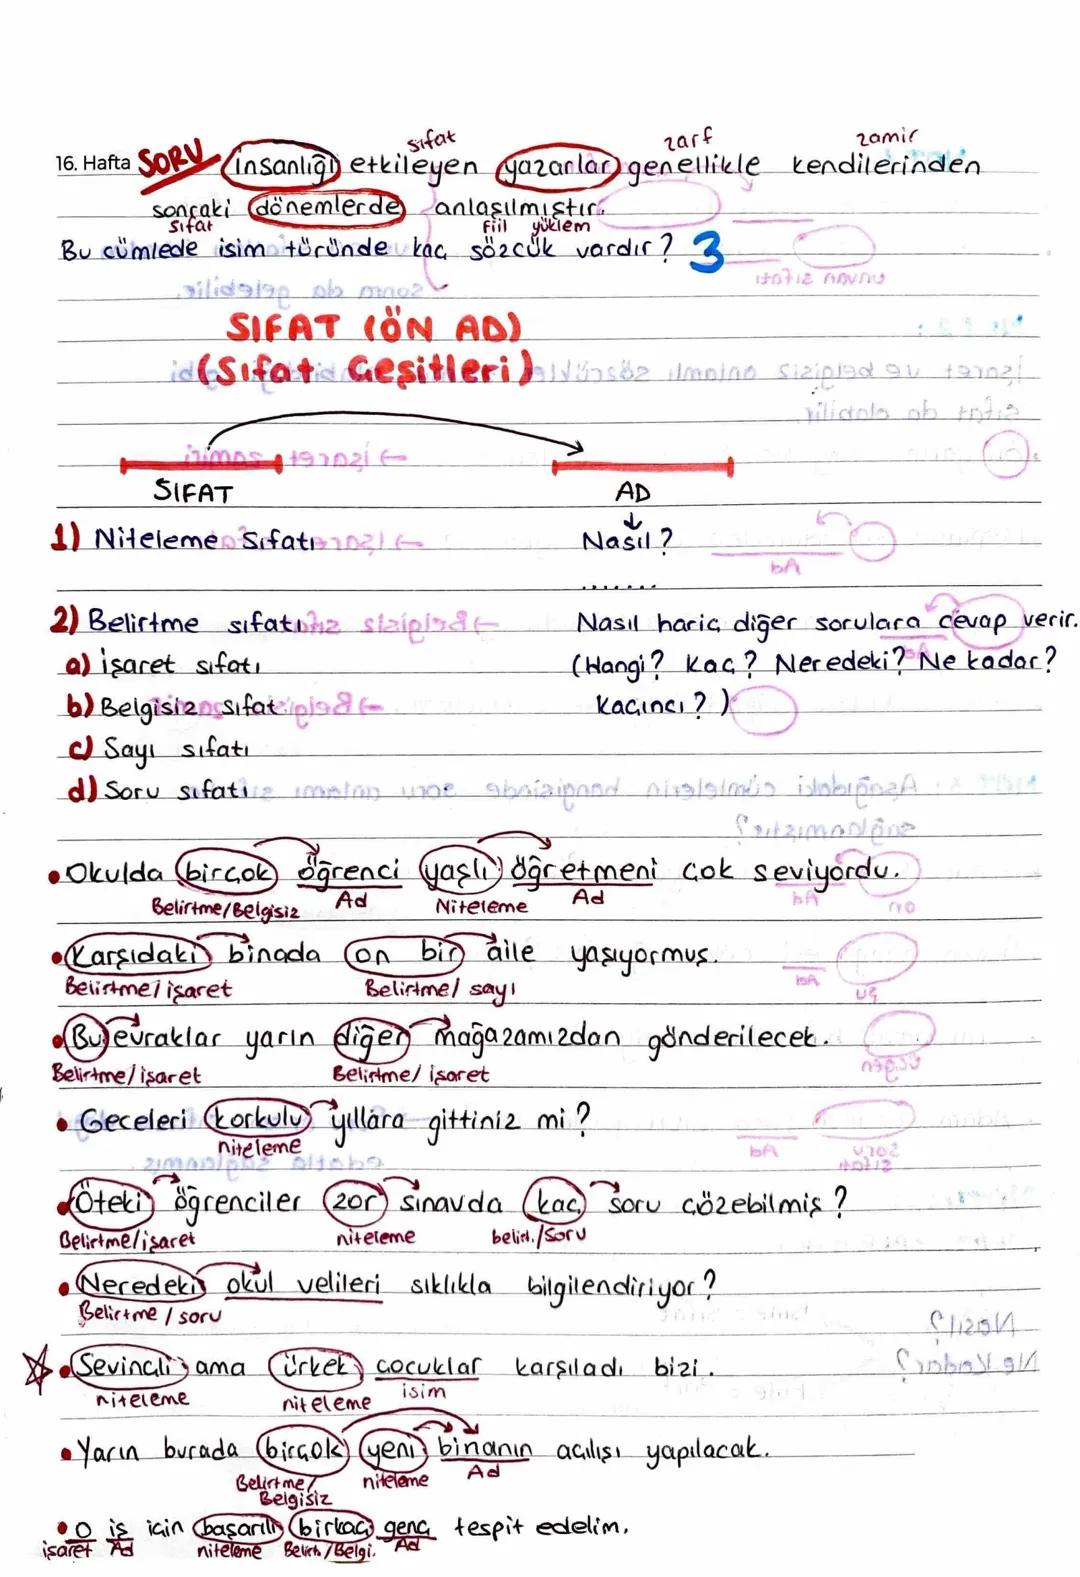 sıfat zarf zamir
16. Hafta SORU insanlığı etkileyen yazarlar genellikle kendilerinden
sonraki dönemlerde anlaşılmıştır.
sıfat fiil yüklem
Bu cümlede isim türünde kaç sözcük vardır? 3
SIFAT (ÖN AD)
(Sıfat Çeşitleri)
SIFAT AD
1) Niteleme Sıfatı Nasıl?
.......
2) Belirtme sıfatı Nasıl hariç diğer sorulara cevap verir.
a) işaret sıfatı (Hangi? Kaç? Neredeki? Ne kadar?
b) Belgisiz sıfat Kaçıncı?)
c) Sayı sıfatı
d) Soru sıfatı
• Okulda birçok öğrenci yaşlı öğretmeni çok seviyordu.
Belirtme/Belgisiz Ad Niteleme Ad
• Karşıdaki binada on bir aile yaşıyormuş.
Belirtme/işaret Belirtme/sayı
• Bu evraklar yarın diğer mağazamızdan gönderilecek.
Belirtme/işaret Belirtme/işaret
• Geceleri korkulu yıllara gittiniz mi?
niteleme
• Öteki öğrenciler zor sınavda kaç soru çözebilmiş?
Belirtme/işaret niteleme belirt./Soru
• Neredeki okul velileri sıklıkla bilgilendiriyor?
Belirtme / soru
• Sevinçli ama ürkek çocuklar karşıladı bizi.
niteleme niteleme isim
• Yarın burada birçok yeni binanın açılışı yapılacak.
Belirtme/ niteleme Ad
Belgisiz
• O iş için başarılı birkaç genç tespit edelim.
işaret Ad niteleme Belirt./Belgi. Ad